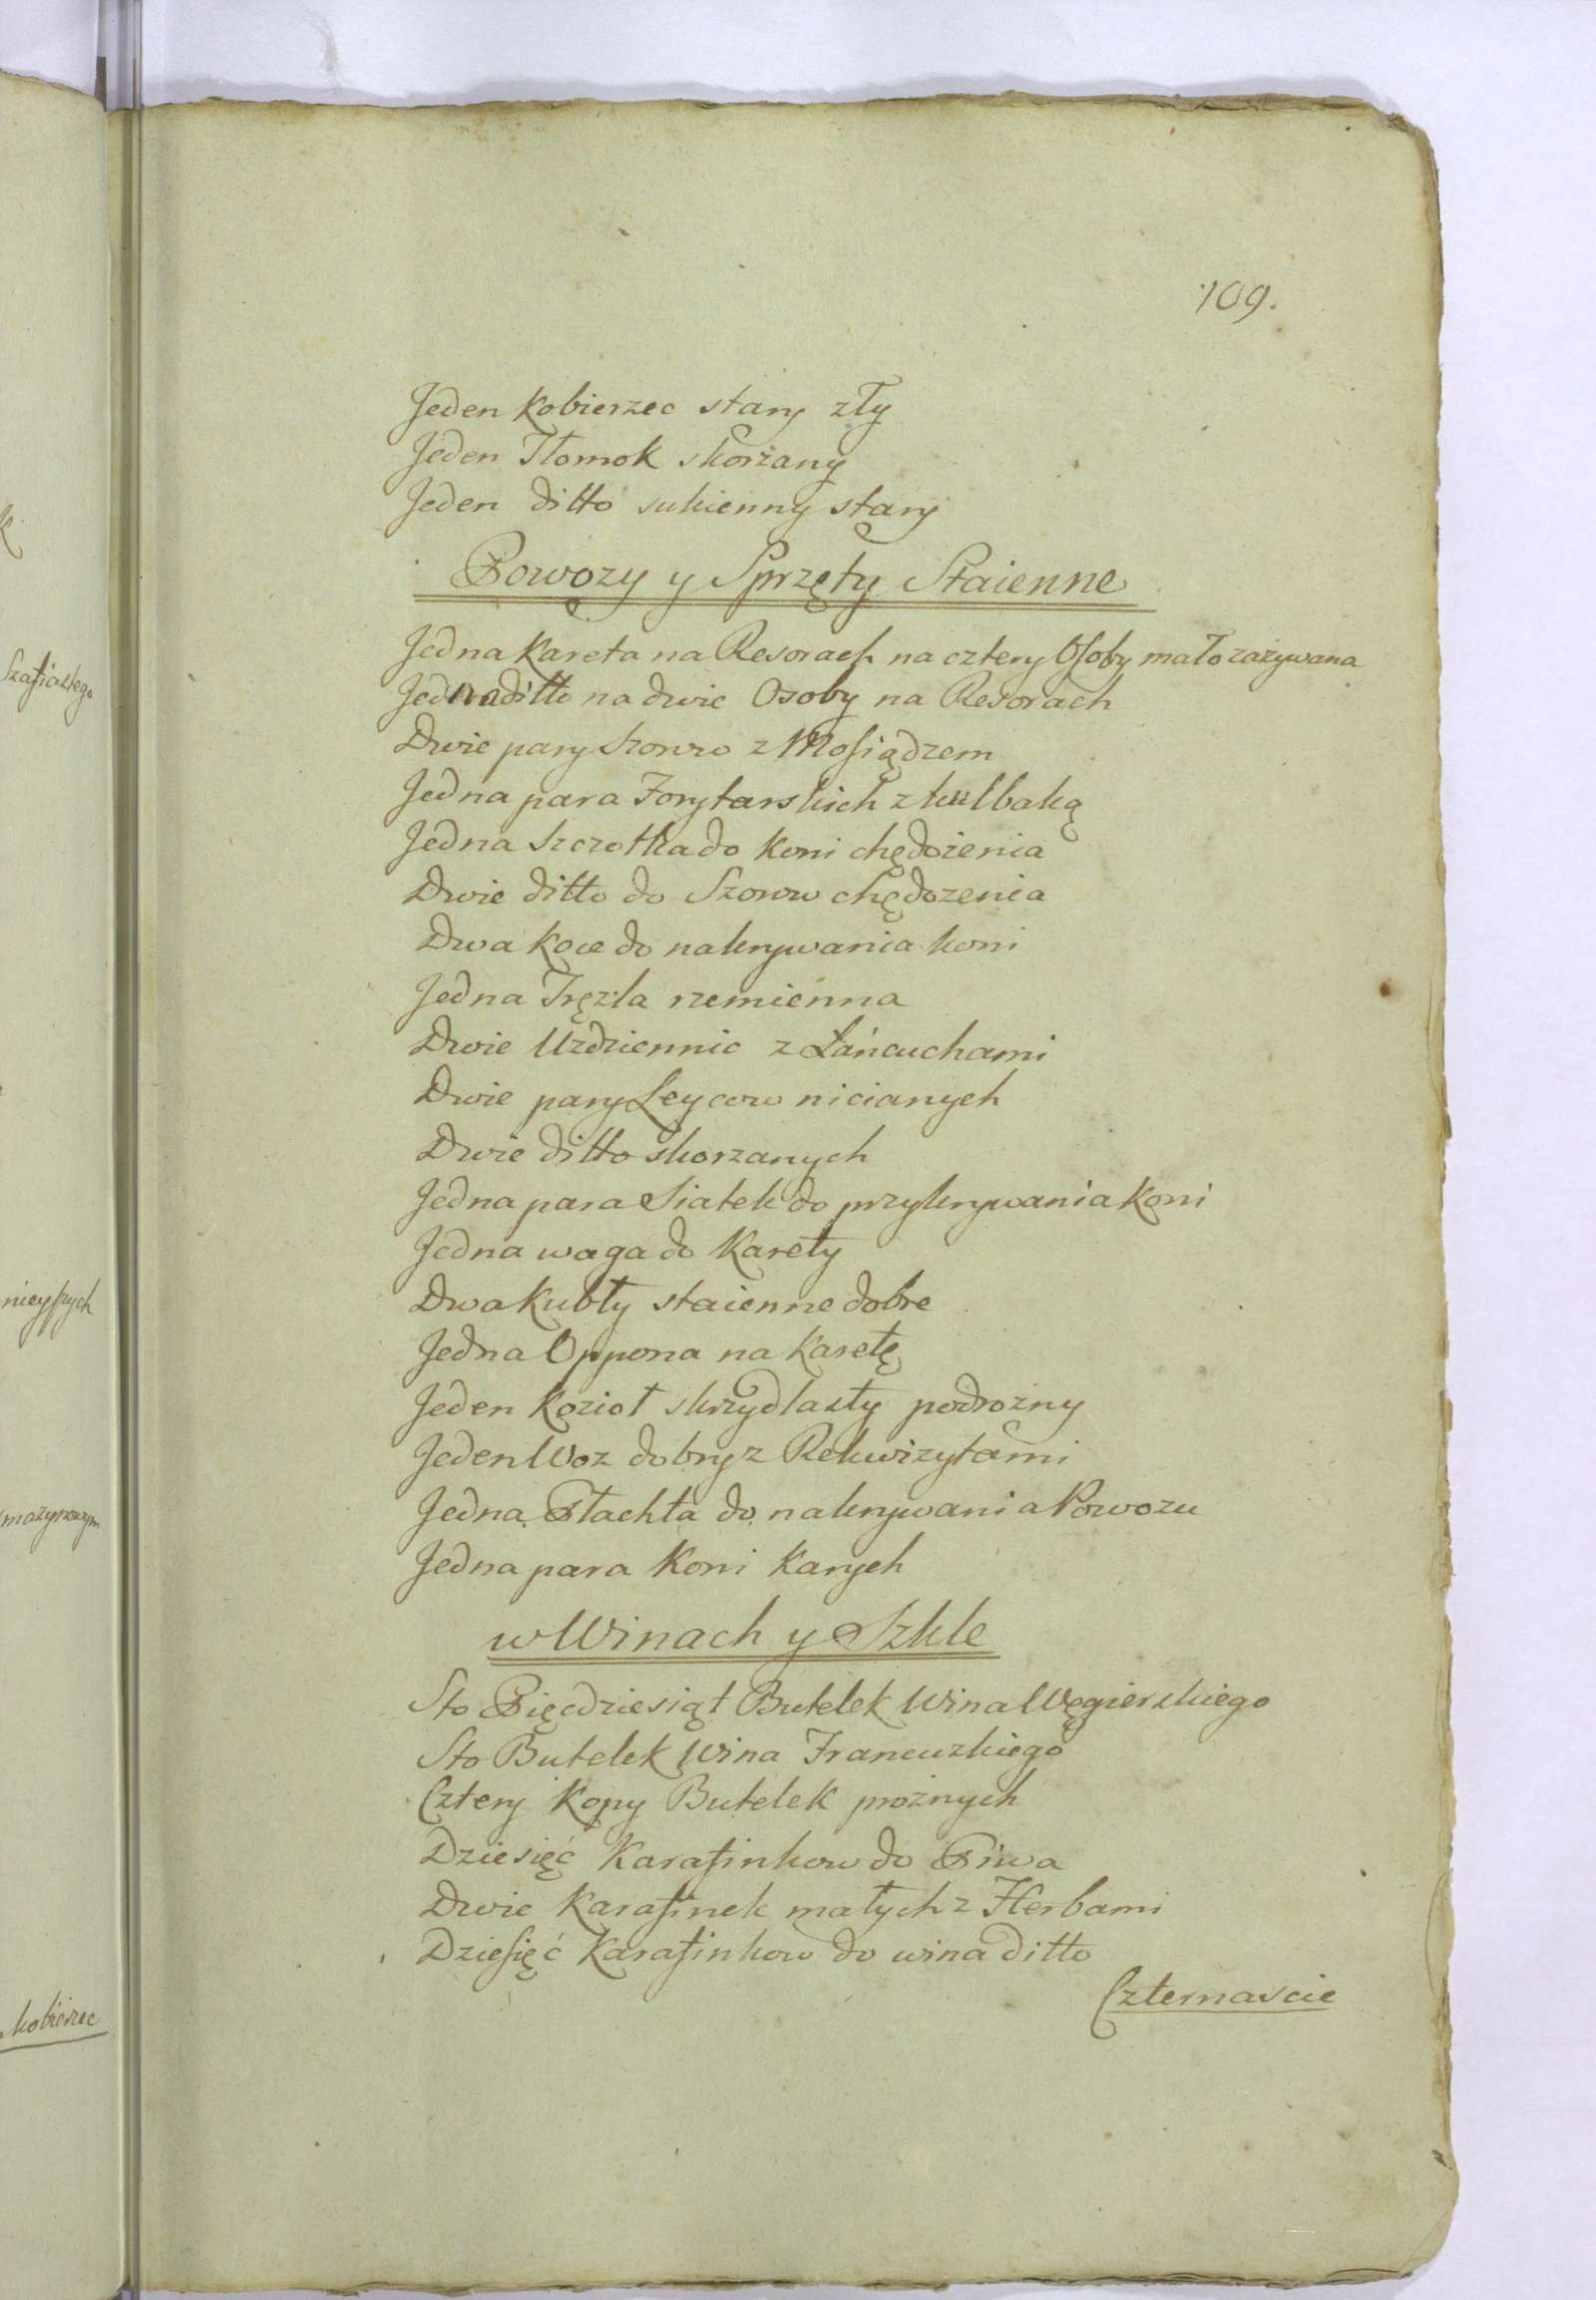 109.
Jeden Kobierzec stary zły
Jeden Tłomok skorzany
Jeden ditto sukienny stary
Powozy y Sprzęty Staienne
Jedna Kareta na Resorach na cztery Osoby mało zazywana
Jedna ditto na dwie Osoby na Resorach
Dwie pary Szorow z Mosiądzem
Jedna para Forytarskich z kulbaką
Jedna Szczotka do Koni chędożenia
Dwie ditto do Szorow chędozenia
Dwa Koce do nakrywania koni
Jedna Tręzla rzemienna
Dwie Uzdziennic z Łańcuchami
Dwie pary Leycow nicianych
Dwie ditto skorzanych
Jedna para Siatek do przykrywania Koni
Jedna waga do Karety
Dwa Kubły staienne dobre
Jedna Oppona na Karetę
Jeden Kozioł skrzydlasty podrozny
Jeden Woz dobry z Rekwizytami
Jedna Płachta do nakrywania Powozu
Jedna para Koni Karych
w Winach y Szkle
Sto Pięcdziesiąt Butelek Wina Węgierskiego
Sto Butelek Wina Francuzkiego
Cztery Kopy Butelek prożnych
Dziesięć Karafinkow do Piwa
Dwie Karafinek małych z Herbami
Dziesięć Karafinkow do wina ditto
Czternascie
szafiastego
nieyszych
kobierzec